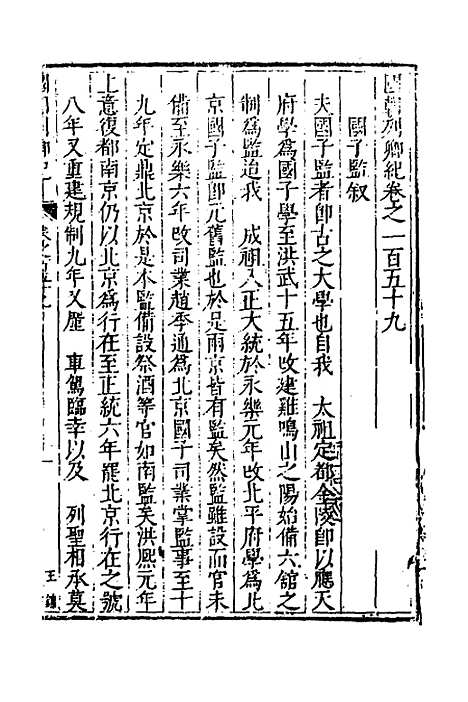 國朝列卿紀卷之一百五十九
國子監叙
夫國子監者卽古之大學也自我 太祖定都金陵卽以應天
府學爲國子學至洪武十五年改建雞鳴山之陽始備六舘之
制爲監迨我 成祖入正大統於永樂元年改北平府學爲北
京國子監卽元舊監也於是兩京皆有監矣然監雖設而官未
備至永樂六年改司業趙季通爲北京國子司業掌監事至十
九年定鼎北京於是本監備設祭酒等官如南監矣洪熙元年
上意復都南京仍以北京爲行在至正統六年罷北京行在之號
八年又重建規制九年又塵 車駕臨幸以及 列聖相承莫